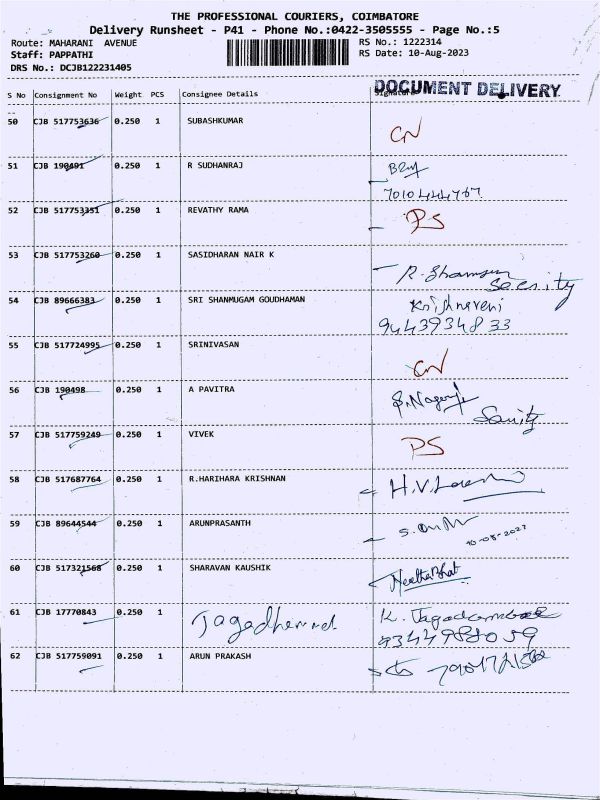 THE PROFESSIONAL COURIERS, COIMBATORE
Delivery Runsheet - P41 - Phone No.:0422-3505555 - Page No.:5
Route: MAHARANI AVENUE
RS No.: 1222314
Staff: PAPPATHI
RS Date: 10-Aug-2023
DRS No.: DCJB122231405
DOCUMENT DELIVERY
S No Consignment No Weight PCS Consignee Details Signature
50 CJB 517753636 0.250 1 SUBASHKUMAR CN
51 CJB 190491 0.250 1 R SUDHANRAJ
7010444767
52 CJB 517753351 0.250 1 REVATHY RAMA PS
53 CJB 517753260 0.250 1 SASIDHARAN NAIR K
R. Shamsun
54 CJB 89666383 0.250 1 SRI SHANMUGAM GOUDHAMAN Krishnaveni
9443934833
55 CJB 517724995 0.250 1 SRINIVASAN CN
56 CJB 190498 0.250 1 A PAVITRA
57 CJB 517759249 0.250 1 VIVEK PS
58 CJB 517687764 0.250 1 R.HARIHARA KRISHNAN H.V.
59 CJB 89644544 0.250 1 ARUNPRASANTH
10-08-2023
60 CJB 517321568 0.250 1 SHARAVAN KAUSHIK
61 CJB 17770843 0.250 1 K. Jagadambal
9344988059
62 CJB 517759091 0.250 1 ARUN PRAKASH